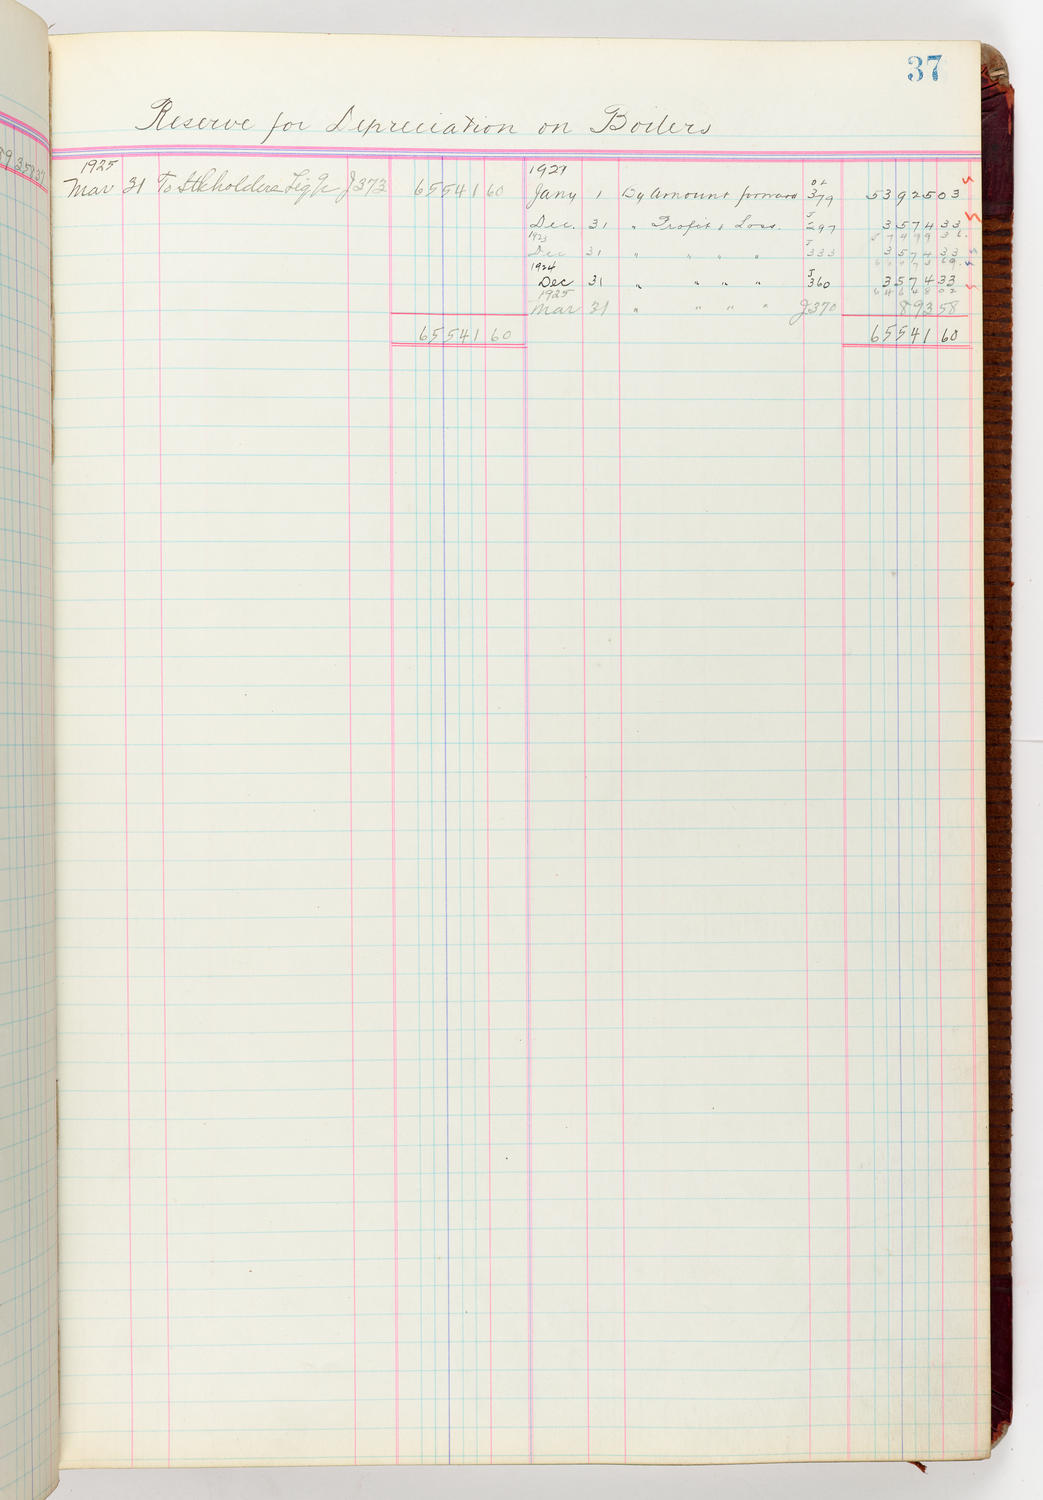 37
Reserve for Depreciation on Boilers
1925
Mar 31 To Stkholders Liq a/c J373 65541 60
65541 60
1921
Jany 1 By Amount forward OL 379 53925 03
Dec. 31 " Profit & Loss. J 297 3574 33
57499 36
1923
Dec 31 " " " " J 333 3574 33
61073 69
1924
Dec 31 " " " " J 360 3574 33
64648 02
1925
Mar 31 " " " " J370 893 58
65541 60